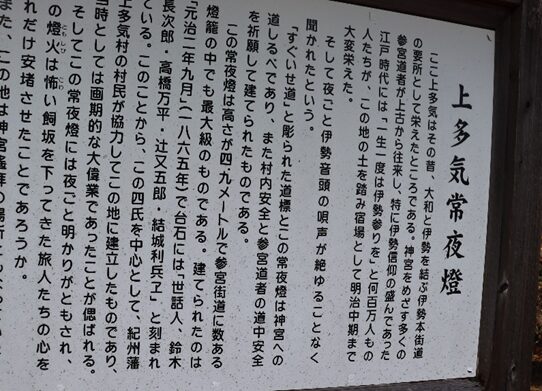 上多気常夜燈
ここ上多気はその昔、大和と伊勢を結ぶ伊勢本街道
の要所として栄えたところである。神宮をめざす多くの
参宮道者が上古から往来し、特に伊勢信仰の盛んであった
江戸時代には「一生一度は伊勢参りを」と何百万人もの
人たちが、この地の土を踏み宿場として明治中期まで
大変栄えた。
そして夜ごと伊勢音頭の唄声が絶ゆることなく
聞かれたという。
「すぐいせ道」と彫られた道標とこの常夜燈は神宮への
道しるべであり、また村内安全と参宮道者の道中安全
を祈願して建てられたものである。
この常夜燈は高さが四・九メートルで参宮街道に数ある
燈籠の中でも最大級のものである。建てられたのは
「元治二年九月」(一八六五年)で台石には、「世話人、鈴木
長次郎・高橋万平・辻又五郎・結城利兵ヱ」と刻まれ
ている。このことから、この四氏を中心として、紀州藩
上多気村の村民が協力してこの地に建立したものであり、
当時としては画期的な大偉業であったことが偲ばれる。
そしてこの常夜燈には夜ごと明かりがともされ、
の燈火は怖い飼坂を下ってきた旅人たちの心を
れだけ安堵させたことであろうか。
また、この地は神宮遙拝の場所